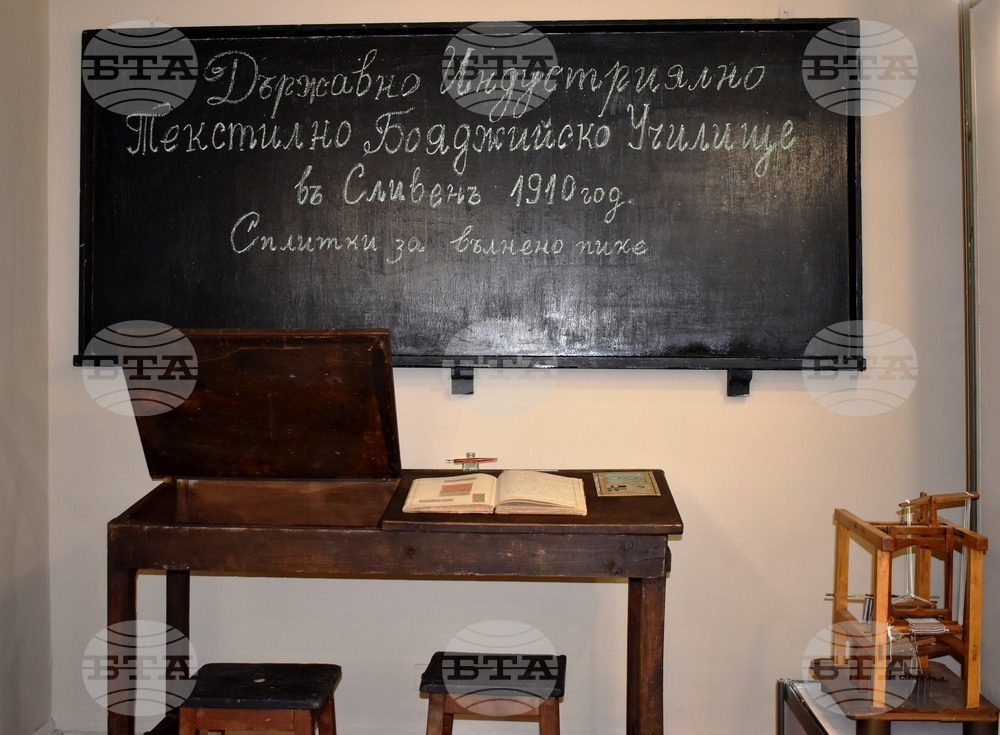 Държавно Индустриялно
Текстилно Бояджийско Училище
въ Сливенъ 1910 год.
Сплитки за вълнено пике
БТА
БТА
БТА
БТА
БТА
БТА
БТА
БТА
БТА